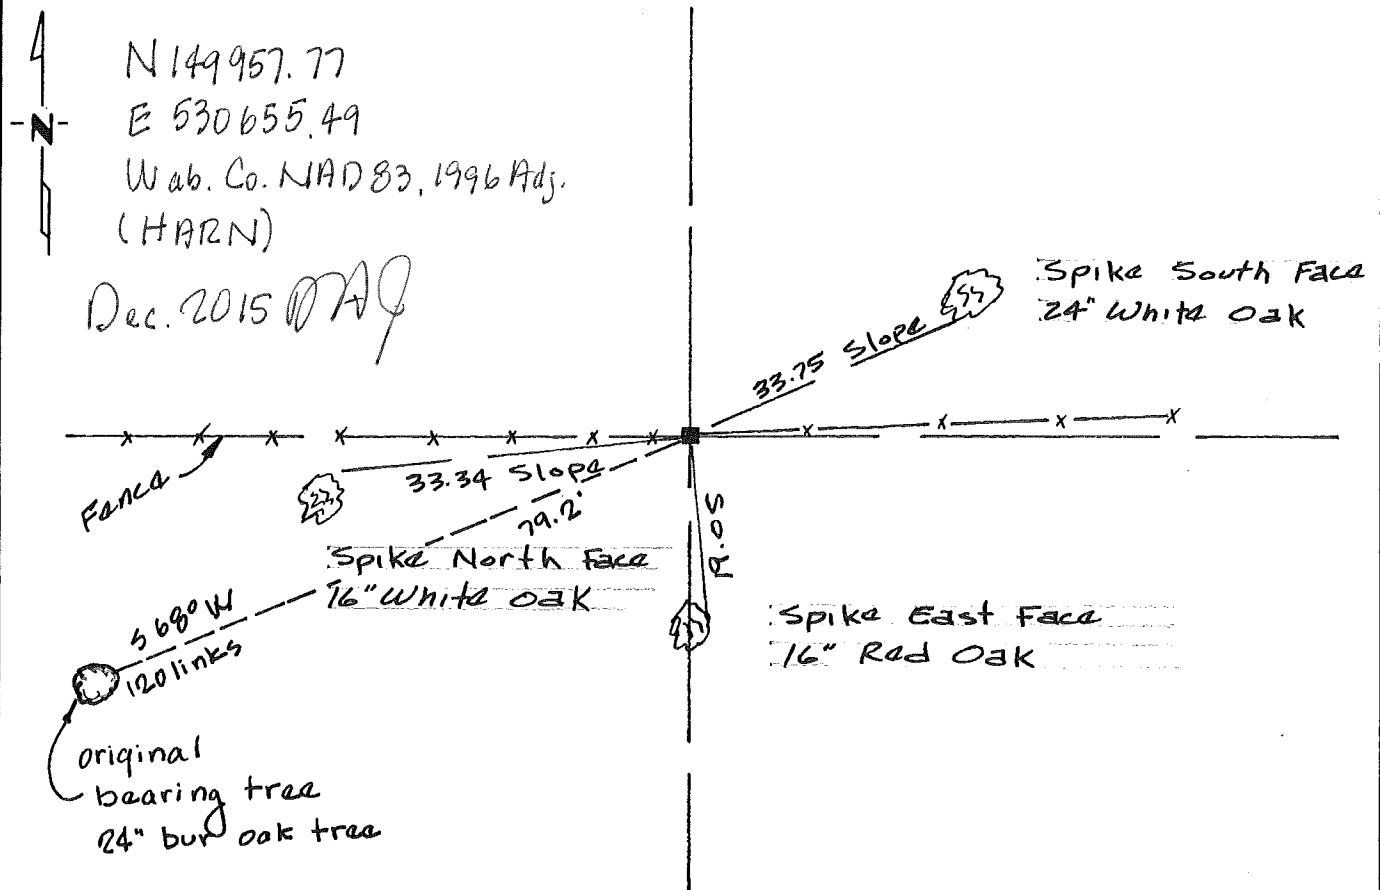 N 149957.77
E 530655.49
Wab. Co. NAD 83, 1996 Adj.
(HARN)
Dec. 2015
N
Spike South Face
24" White Oak
33.75 Slope
Fence
33.34 Slope
79.2'
Spike North Face
16" White Oak
Spike East Face
16" Red Oak
S 68° W
120 links
original
bearing tree
24" bur oak tree